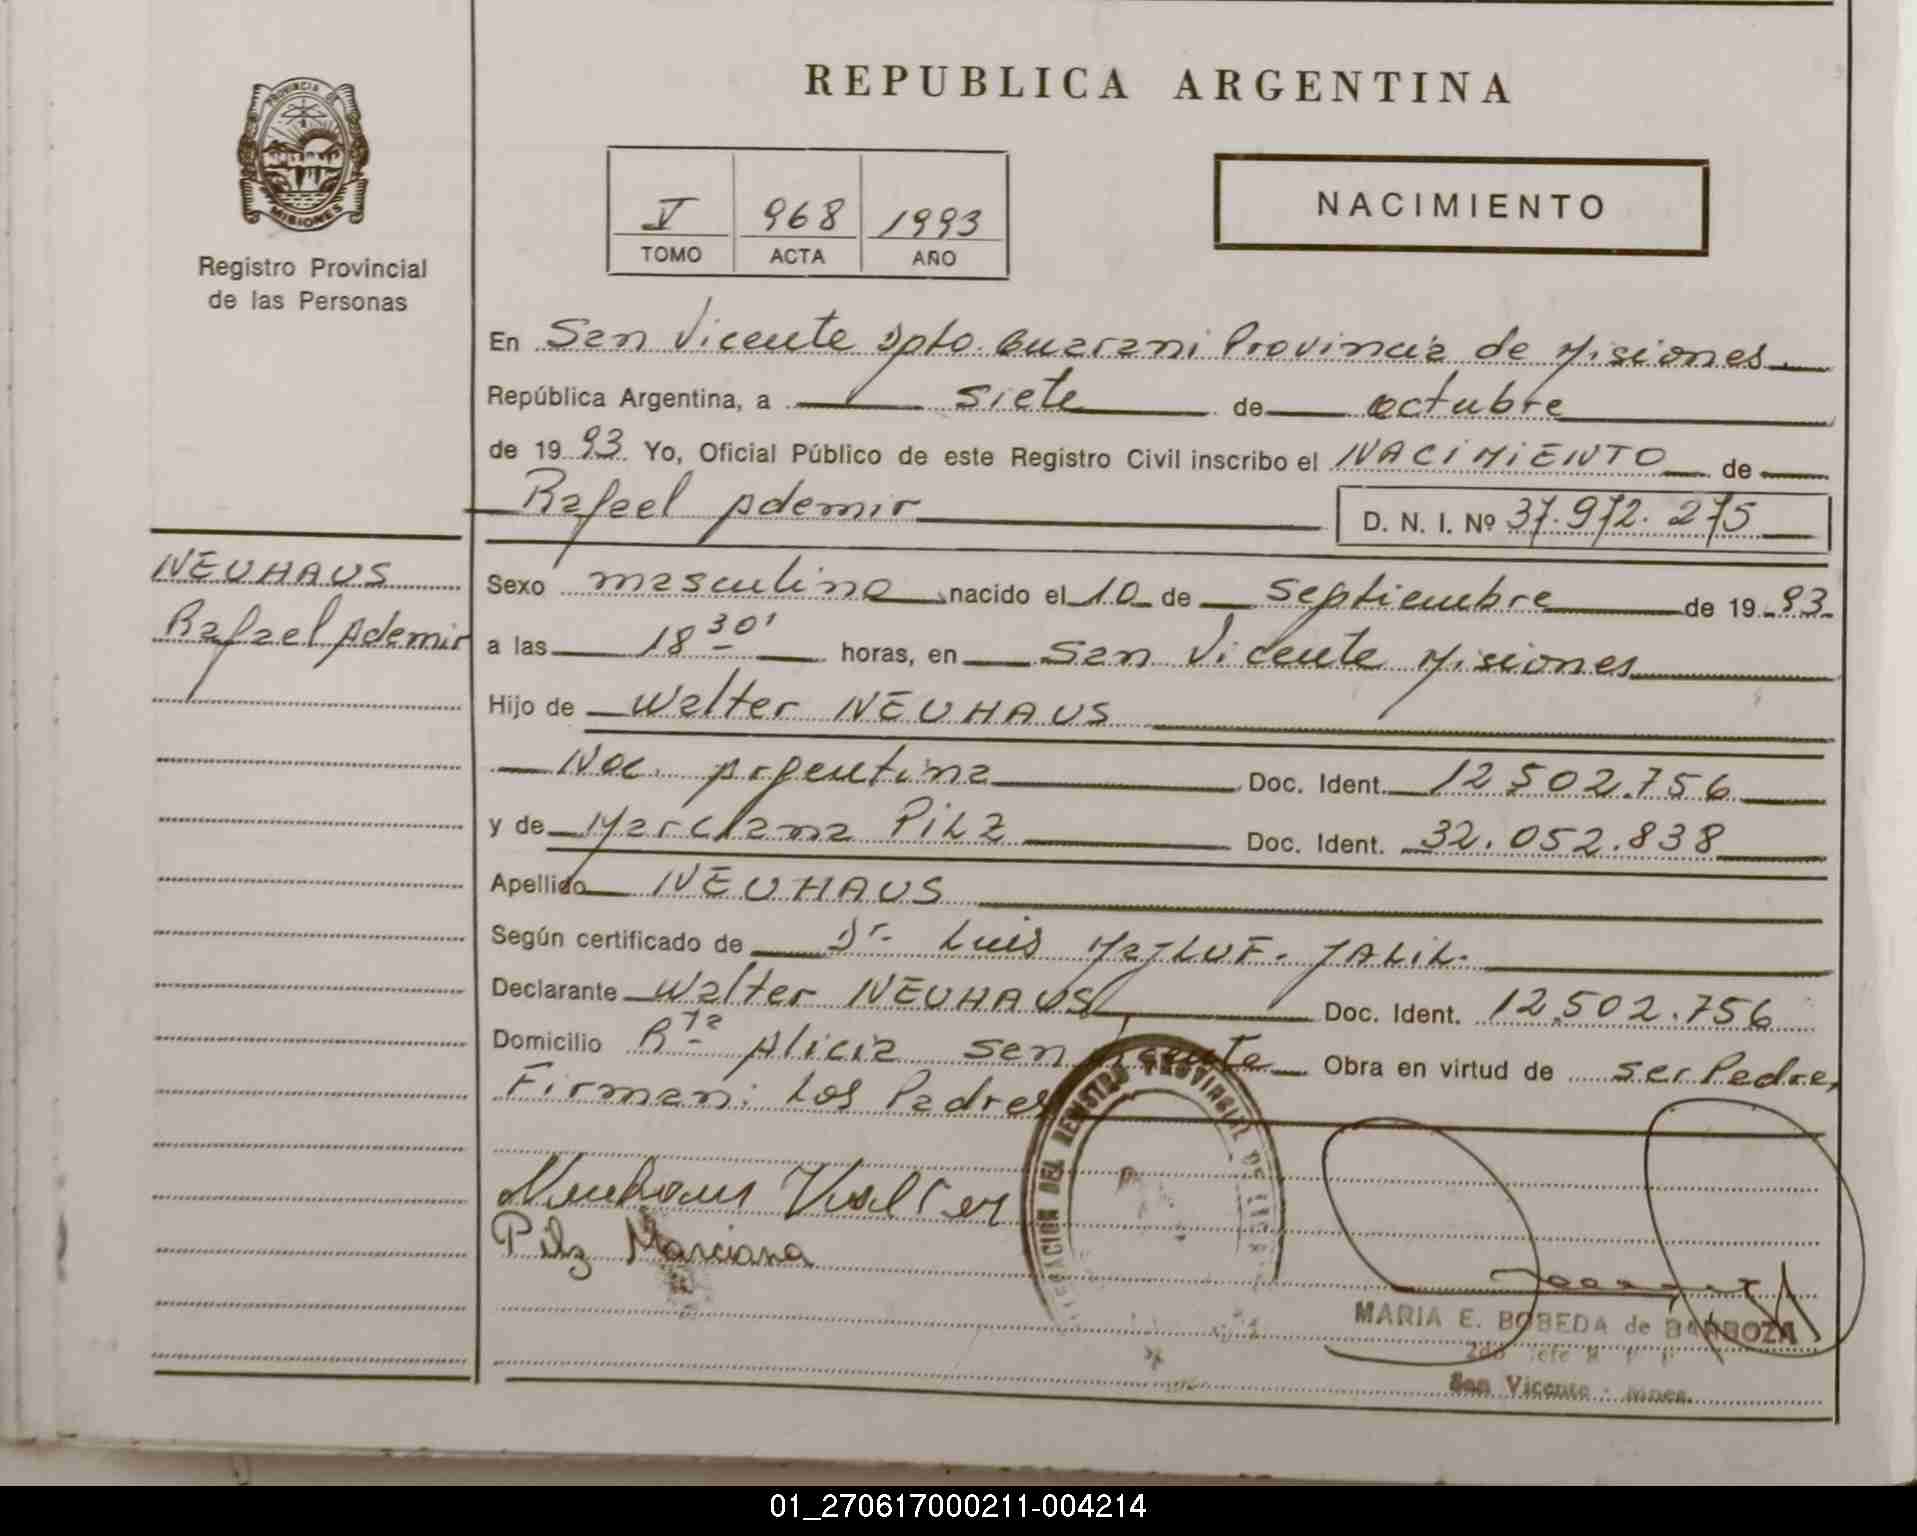 REPUBLICA ARGENTINA
PROVINCIA DE
MISIONES
Registro Provincial
de las Personas
V 968 1993
TOMO ACTA AÑO
NACIMIENTO
En San Vicente Dpto. Guarani Provincia de Misiones
República Argentina, a siete de octubre
de 1993 Yo, Oficial Público de este Registro Civil inscribo el NACIMIENTO de
Rafael Ademir D. N. I. Nº 37.972.275
NEUHAUS
Rafael Ademir
Sexo masculino nacido el 10 de septiembre de 1993
a las 18 30' horas, en San Vicente Misiones
Hijo de Walter NEUHAUS
Nac. Argentina Doc. Ident. 12.502.756
y de Marciana PILZ Doc. Ident. 32.052.838
Apellido NEUHAUS
Según certificado de Dr. Luis MAJLUF. JALIL.
Declarante Walter NEUHAUS Doc. Ident. 12.502.756
Domicilio Rta Alicia San Vicente Obra en virtud de ser Padre,
Firman: Los Padres
DEL REGISTRO PROVINCIAL DE
Neuhaus Walter
Pilz Marciana
MARIA E. BOBEDA de BARBOZA
2do Jefe R P P
San Vicente - Mnes.
01_270617000211-004214